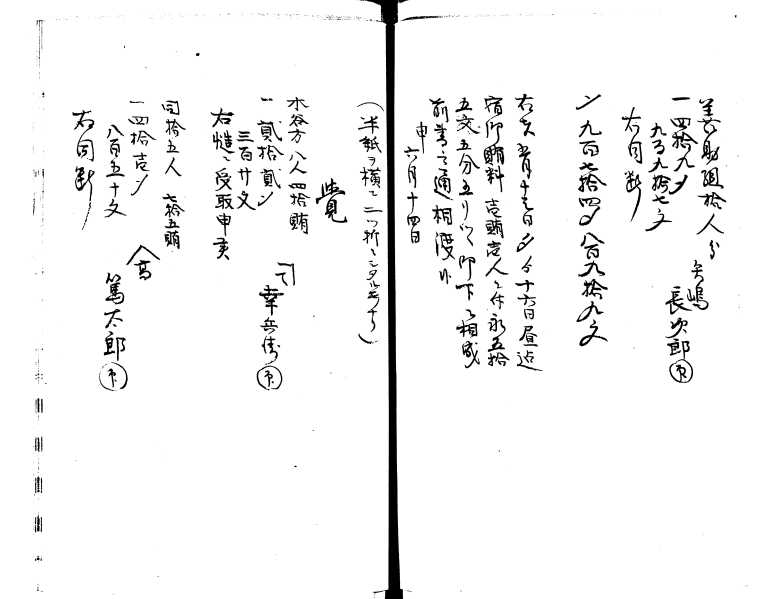 善助組拾人分
一四拾九〆 矢嶋
九百九拾七文 長次郎㊞
右同断
〆九百七拾四〆八百九拾九文
右夫 十六日昼迄
宿 賄料壱賄壱人ニ付永五拾
五文五分五り ツヽ 御下ケ相成
前書之通相渡ス
申
六月十四日
(半紙ヲ横ニ二ツ折ニシタルモノナリ)
覚
水谷方八人四拾賄
一弐拾弐〆
三百廿文 幸兵衛㊞
右慥ニ受取申候
同拾五人 七拾五賄
一四拾壱〆
八百五十文 高
右同断 篤太郎㊞